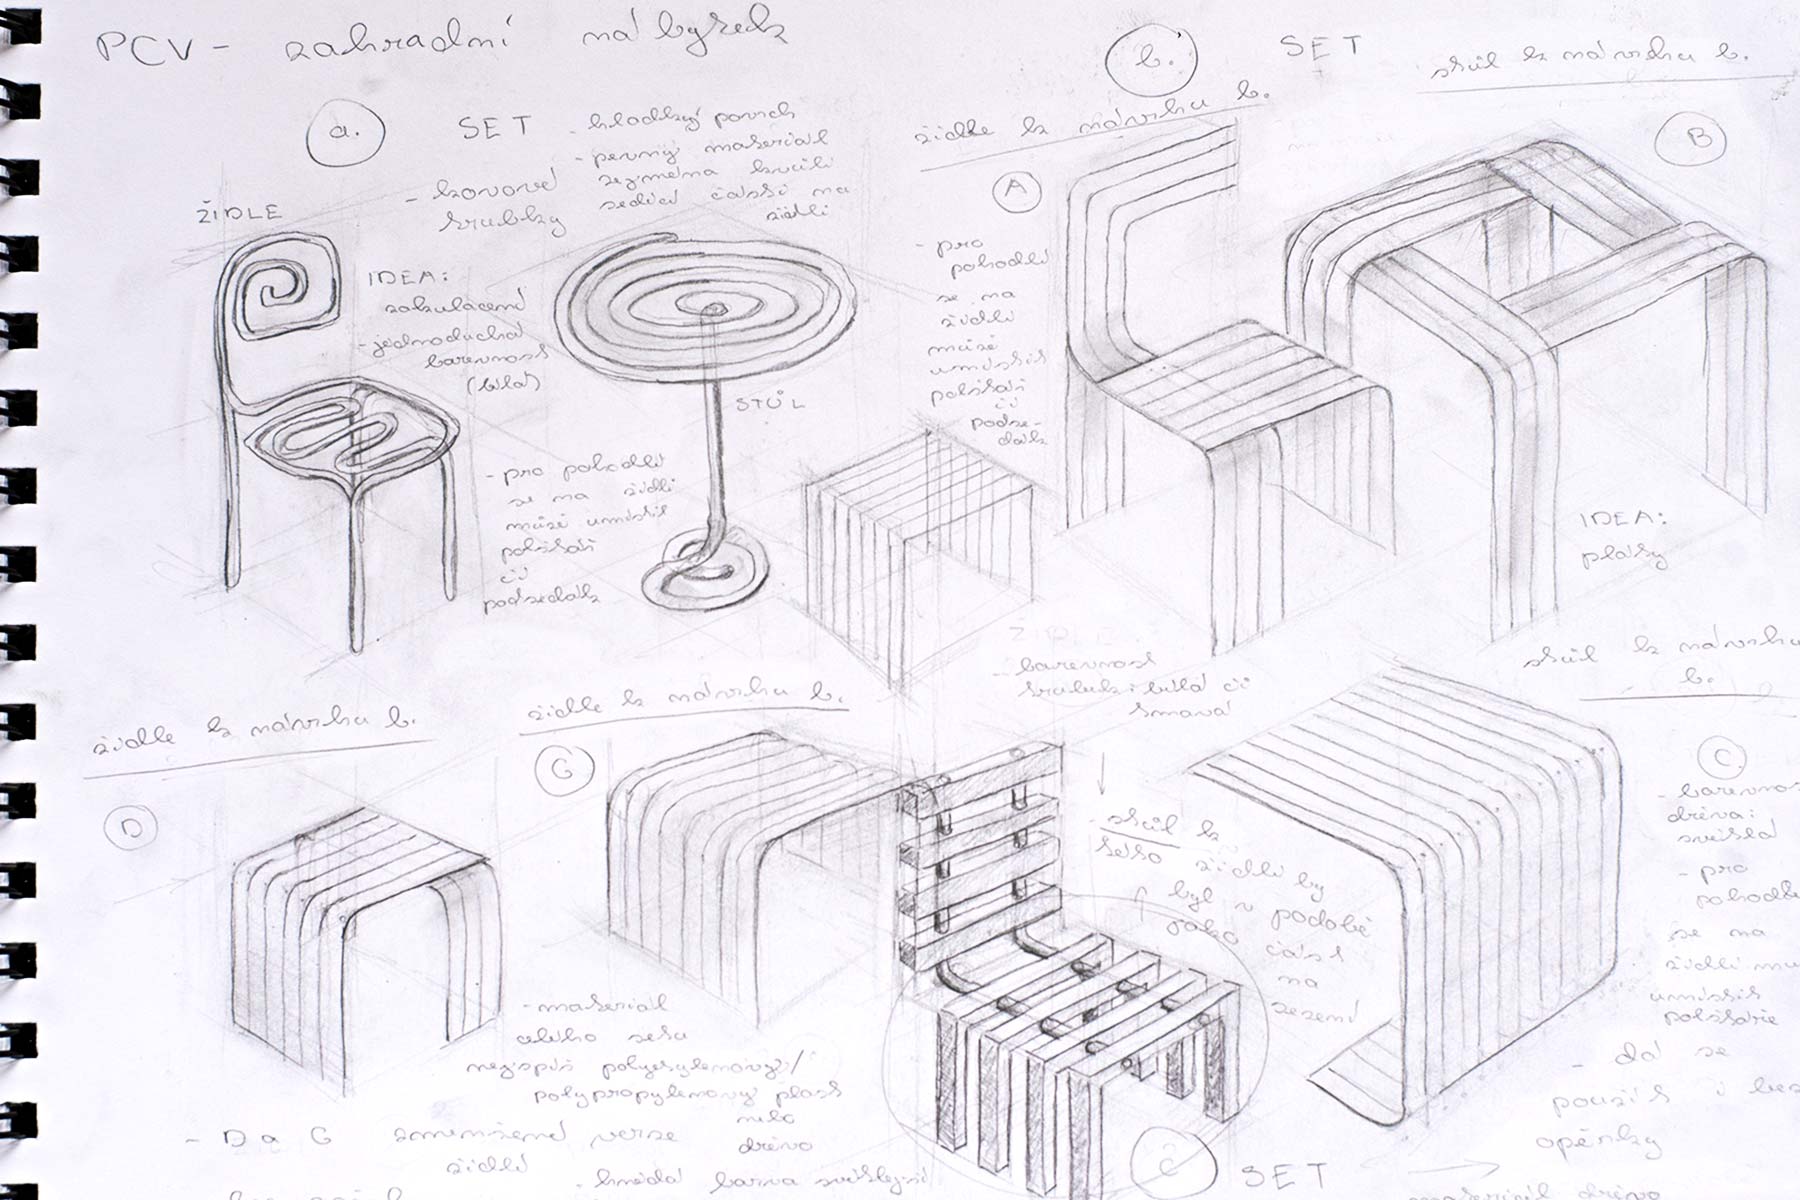 PCV - zahradní nábytek
a.
SET
- hladký povrch
- pevný materiál
zejména kvůli
sedící části na
židli
- kovové
trubky
ŽIDLE
IDEA:
zakulacené
- jednoduchá
barevnost
(bílá)
STŮL
- pro pohodlí
se na židli
může umístit
polštář
či
podsedák
b.
SET
židle k návrhu b.
stůl k návrhu b.
A
- pro
pohodlí
se na
židli
může
umístit
polštář
či
podse-
dák
B
IDEA:
pláty
ŽIDLE
- barevnost
trubek: bílá či
tmavá
stůl k návrhu
b.
židle k návrhu b.
židle k návrhu b.
D
G
C
- barevnos
dřeva:
světlá
- pro
pohodlí
se na
židli mů
umístit
polštáře
- dá se
použít i bez
opěrky
- stůl k
této židli by
byl v podobě
jako část
na
sezení
- materiál
celého setu
nejspíš polyetylenový/
polypropylenový plast
nebo
dřevo
- D a G zmenšené verze
židlí
- hnědá barva světlejší
č
SET
materiál dřevo